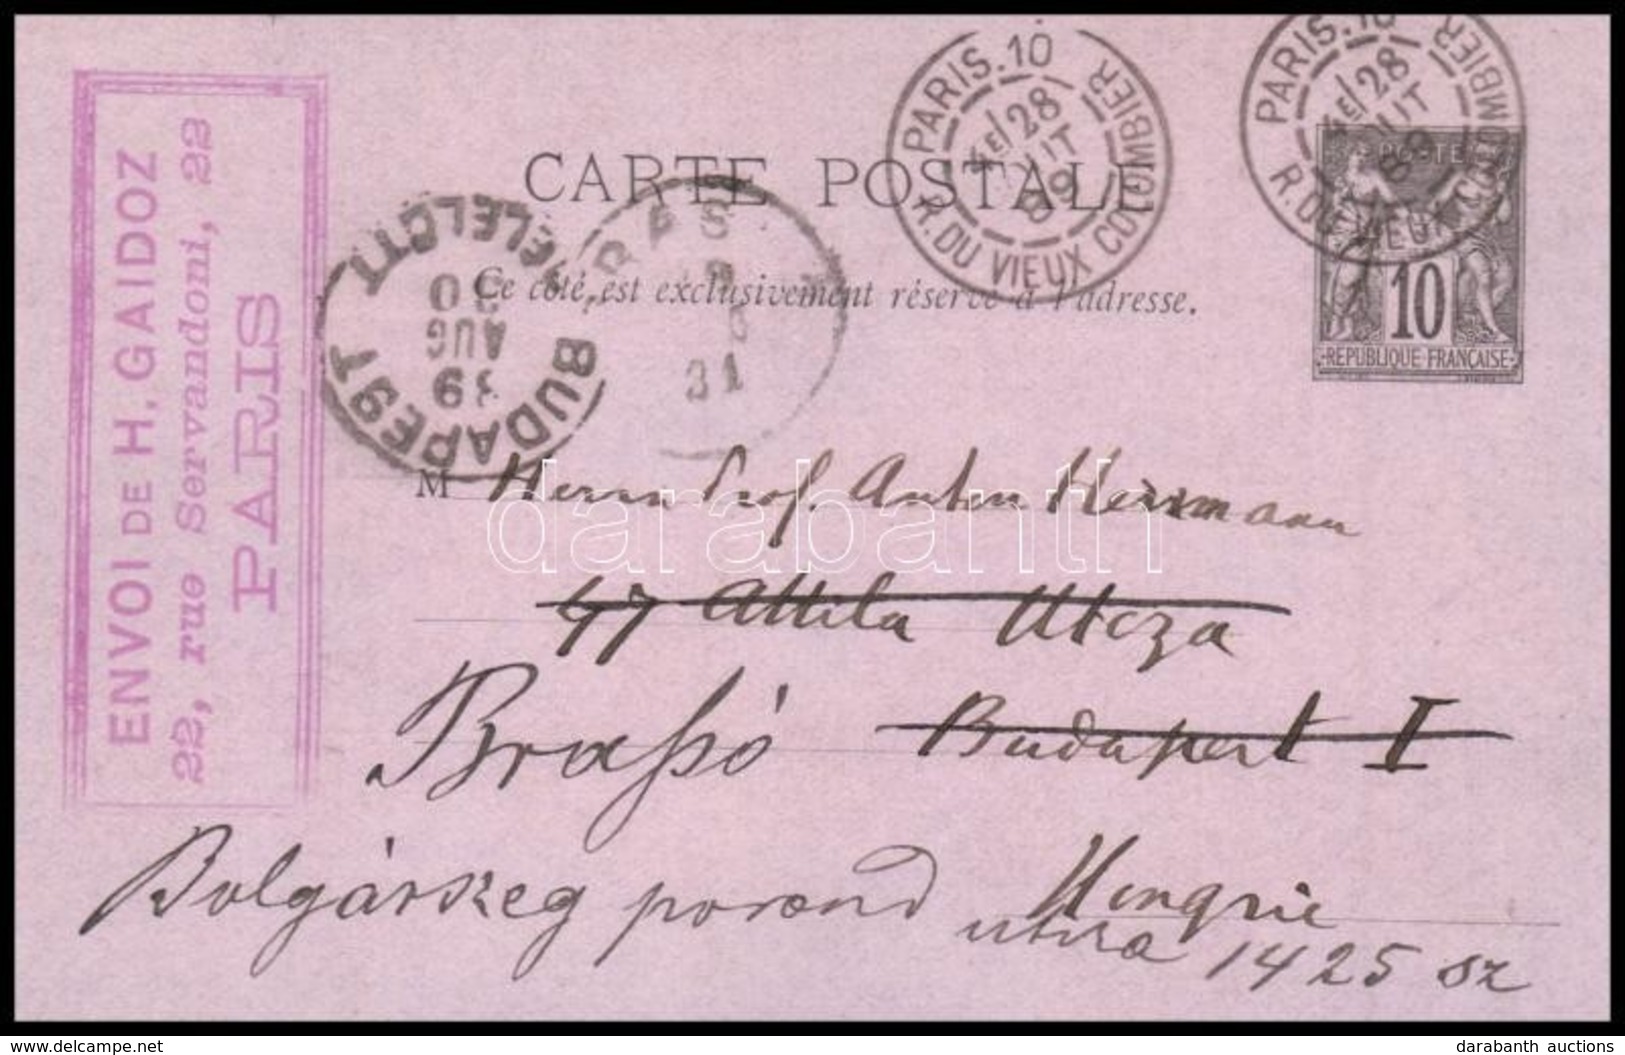 ENVOI DE H. GAIDOZ
22, rue Servandoni, 22
PARIS
PARIS.10
4E/28
89
R. DU VIEUX COLOMBIER
PARIS.10
4E/28
89
R. DU VIEUX COLOMBIER
POSTE
10
RÉPUBLIQUE FRANÇAISE
CARTE POSTALE
Ce côté est exclusivement réservé à l'adresse.
BUDAPEST
DÉLELŐTT
30
AUG
89
31
M Herrn Prof. Anton Herrmann
47 Attila Utcza
Brassó Budapest I
Hongrie
Bolgárszeg porond utcza 1425 sz
darabanth
www.delcampe.net
darabanth auctions